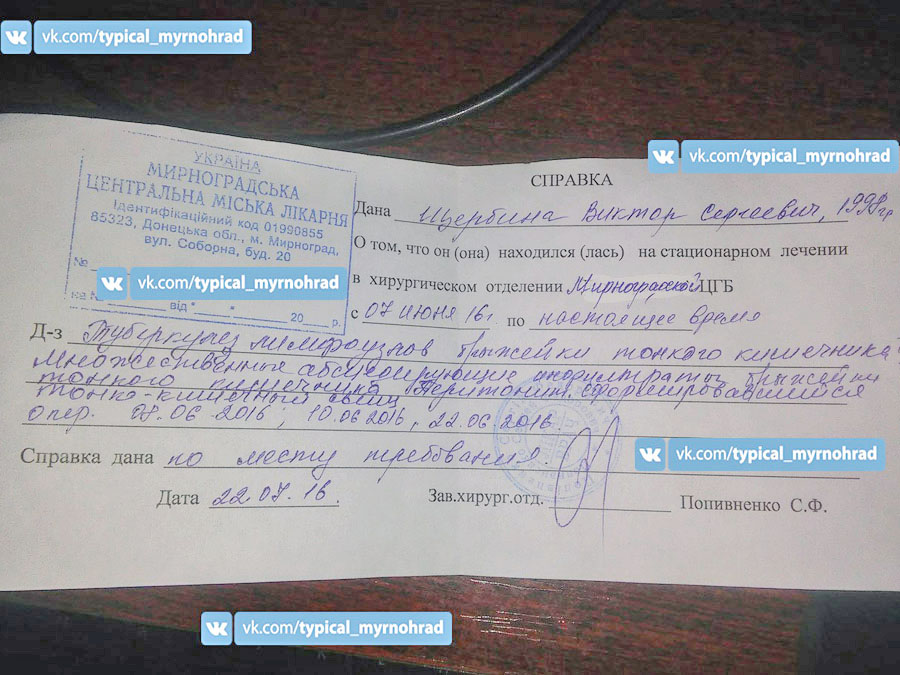 vk.com/typical_myrnohrad
vk.com/typical_myrnohrad
УКРАЇНА
МИРНОГРАДСЬКА
ЦЕНТРАЛЬНА МІСЬКА ЛІКАРНЯ
Ідентифікаційний код 01990855
85323, Донецька обл., м. Мирноград,
вул. Соборна, буд. 20
№
vk.com/typical_myrnohrad
на № від " " 20 р.
СПРАВКА
Дана Щербина Виктор Сергеевич, 1998гр
О том, что он (она) находился (лась) на стационарном лечении
в хирургическом отделении Мирноградской ЦГБ
с 07 июня 16г по настоящее время
Д-з Туберкулез лимфоузлов брыжейки тонкого кишечника
Множественные абсцедирующие инфильтраты брыжейки
тонкого кишечника. Перитонит. Сформировавшийся
тонко-кишечный свищ
опер. 06 2016; 10.06 2016, 22.06 2016
Справка дана по месту требования.
vk.com/typical_myrnohrad
Дата 22.07.16. Зав.хирург.отд. Попивненко С.Ф.
vk.com/typical_myrnohrad